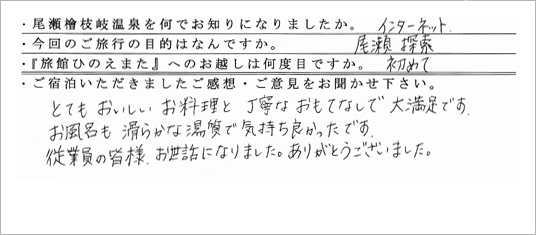 ・尾瀬檜枝岐温泉を何でお知りになりましたか。 インターネット.
・今回のご旅行の目的はなんですか。 尾瀬 探索
・『旅館ひのえまた』へのお越しは何度目ですか。 初めて
・ご宿泊いただきましたご感想・ご意見をお聞かせ下さい。
とてもおいしいお料理と丁寧なおもてなしで大満足です.
お風呂も滑らかな湯質で気持ち良かったです.
従業員の皆様.お世話になりました。ありがとうございました。